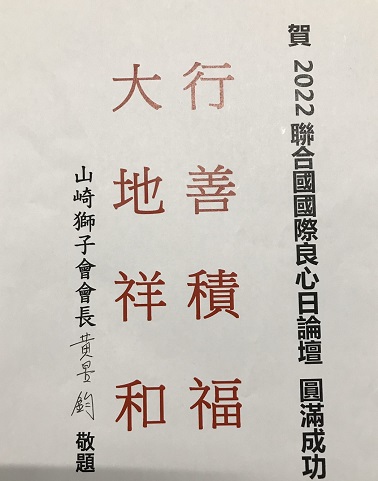 賀 2022聯合國國際良心日論壇 圓滿成功
行善積福
大地祥和
山崎獅子會會長 黃昱鈞 敬題